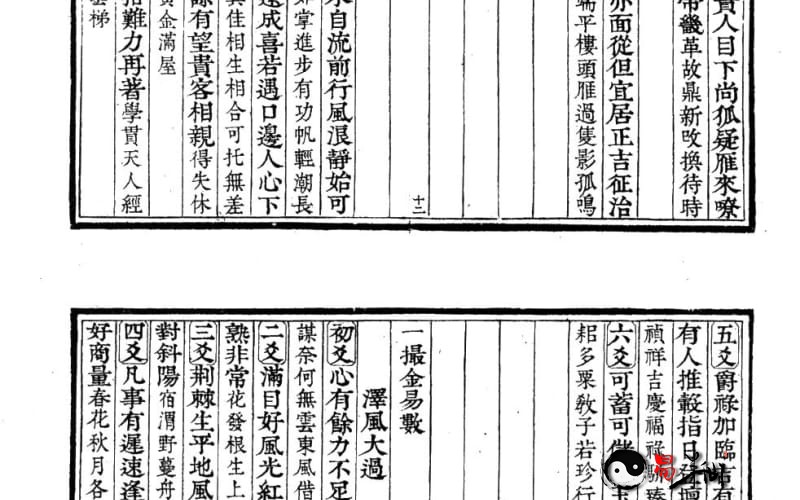 貴人目下尚狐疑雁來嘹
帶畿革故鼎新改換待時
亦面從但宜居正吉征治
端平樓頭雁過隻影孤鳴
十二
水自流前行風浪靜始可
掌進步有功帆輕潮長
成喜若遇口邊人心下
其佳相生相合可托無差
餘有望貴客相親得失休
黃金滿屋
難力再著學貫天人經
雲梯
五爻爵祿加臨吉有
有人推轂指日登壇
禎祥吉慶福祿臻
六爻可蓄可儲
耜多粟敎子若珍行
一撮金易數
澤風大過
初爻心有餘力不足
謀奈何無雲東風借
二爻滿目好風光紅
熟非常花發根生上
三爻荆棘生平地風
對斜陽宿渭野蔓舟
四爻凡事有遲速逢
好商量春花秋月各